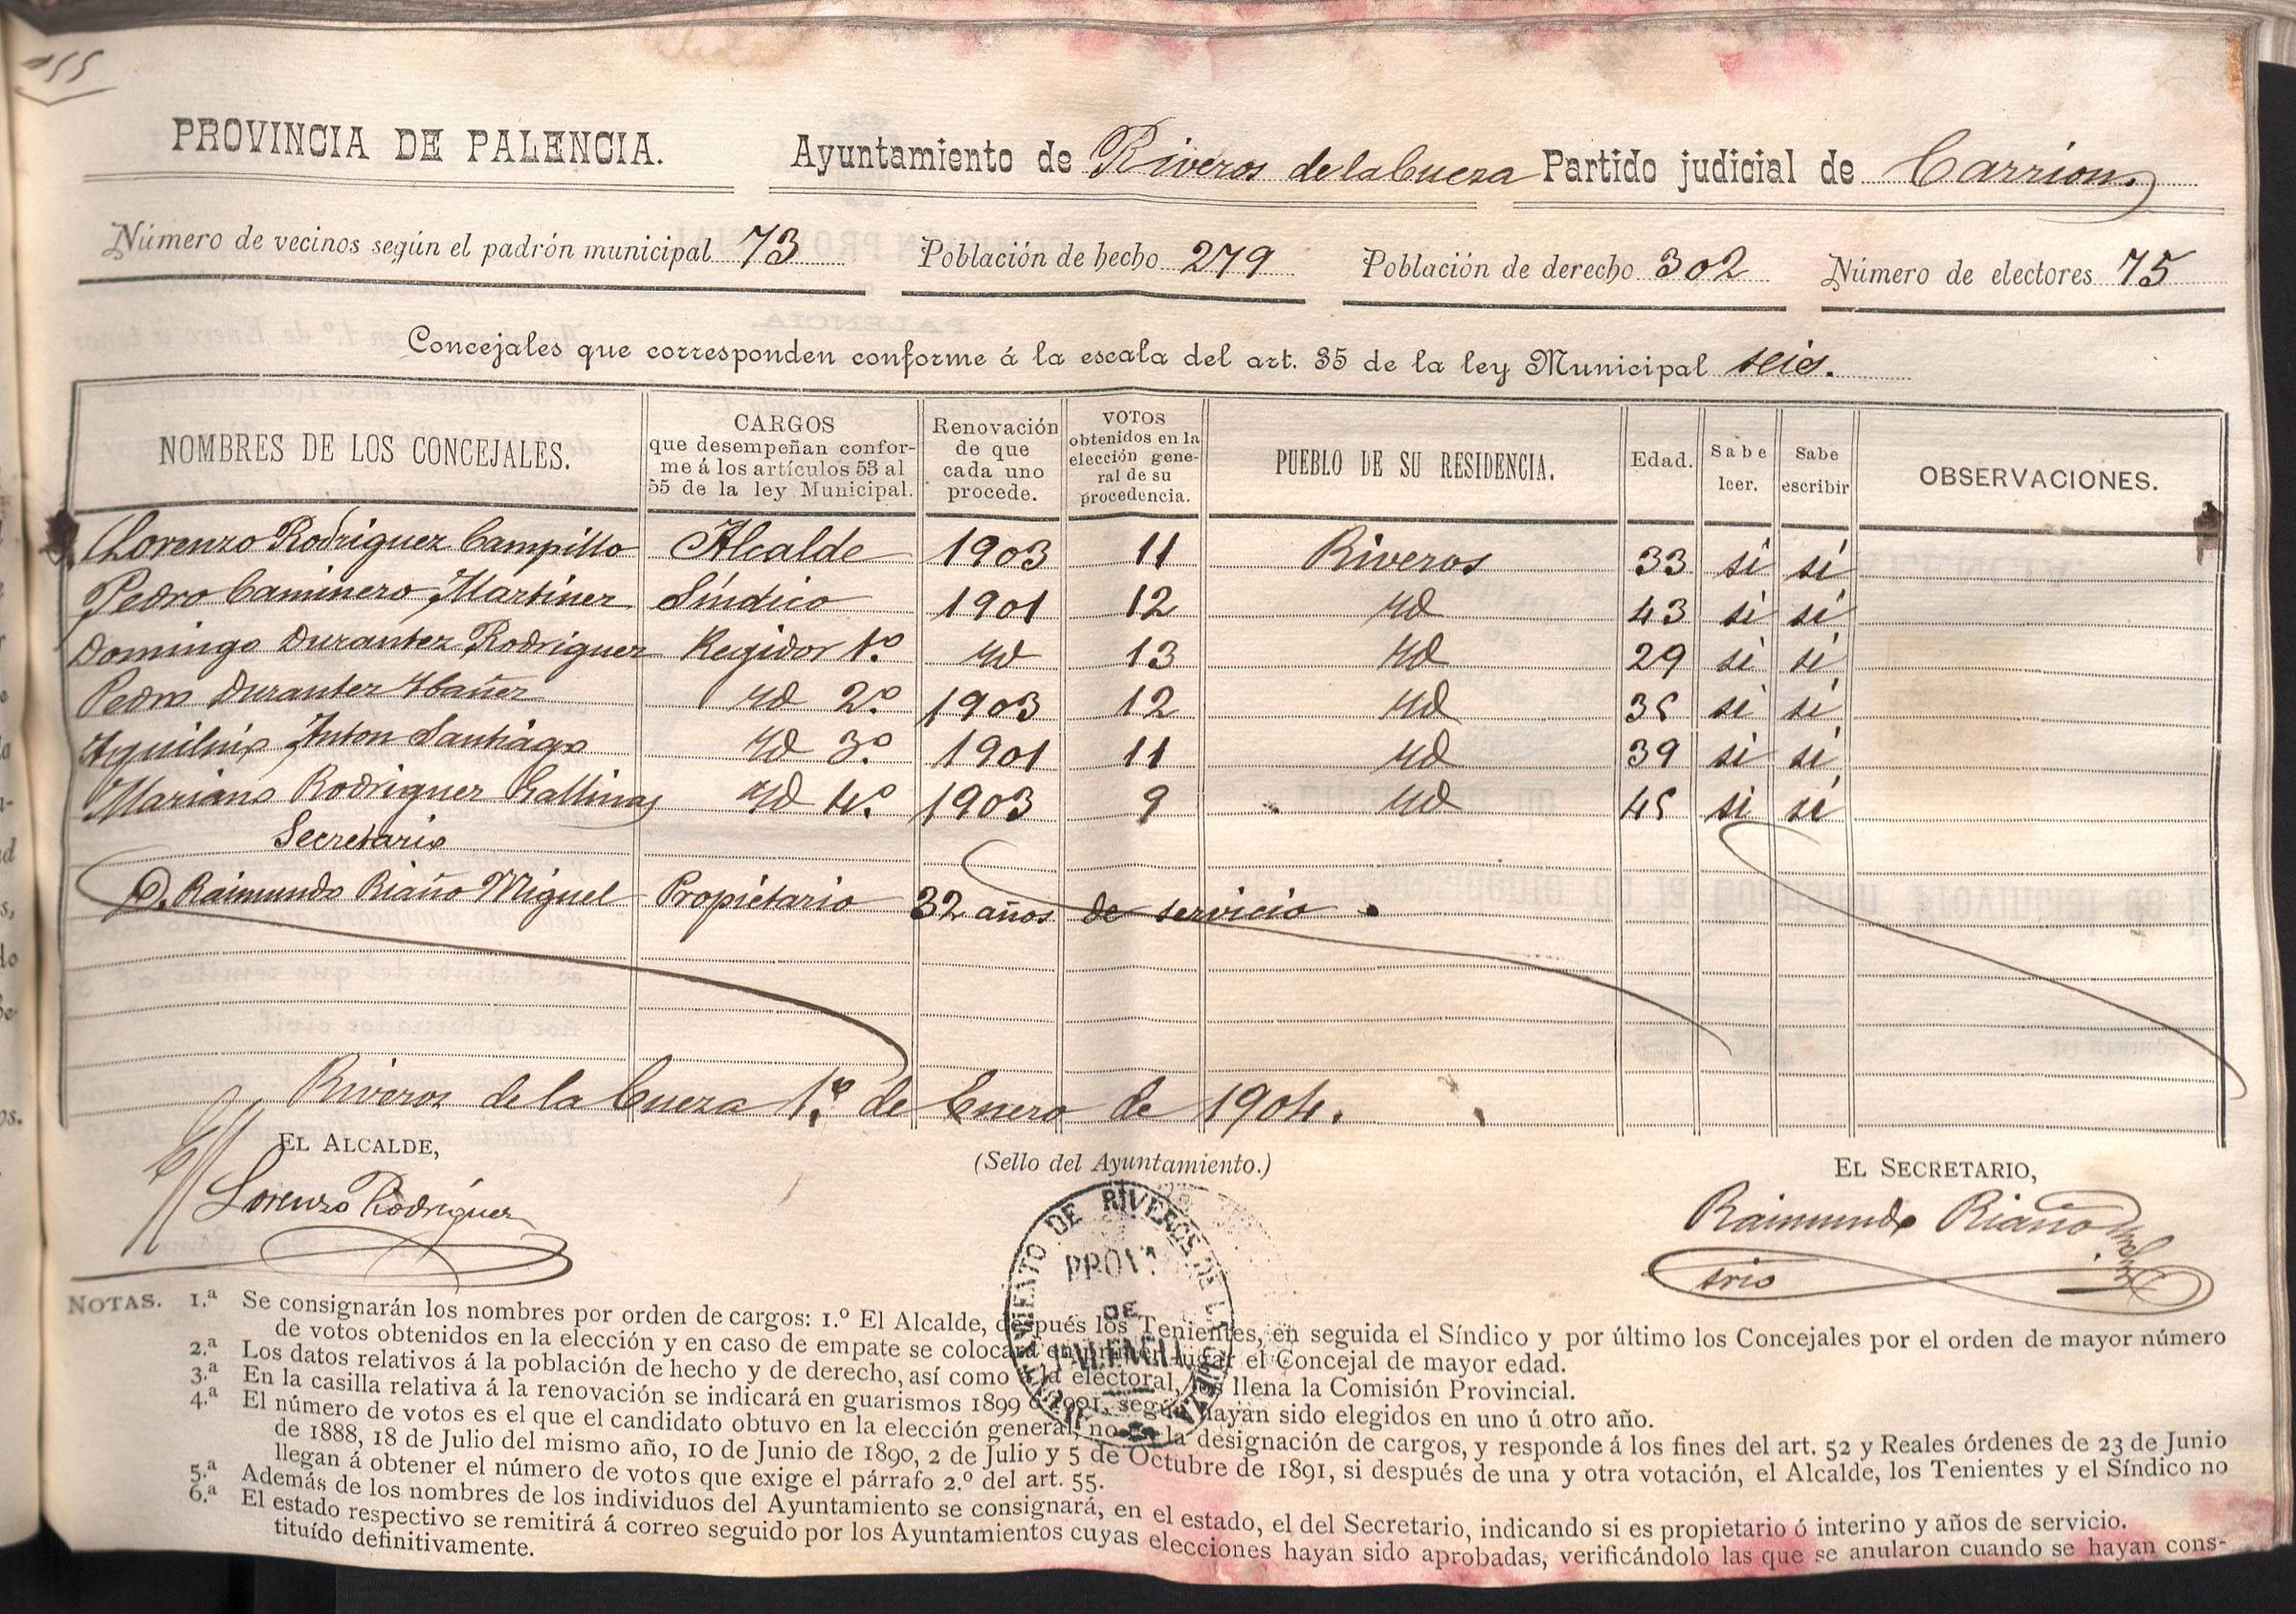 155
PROVINCIA DE PALENCIA. Ayuntamiento de Riveros de la Cueza Partido judicial de Carrion
Número de vecinos según el padrón municipal 73 Población de hecho 279 Población de derecho 302 Número de electores 75
Concejales que corresponden conforme á la escala del art. 35 de la ley Municipal seis.
NOMBRES DE LOS CONCEJALES. CARGOS que desempeñan conforme á los artículos 53 al 55 de la ley Municipal. Renovación de que cada uno procede. VOTOS obtenidos en la elección general de su procedencia. PUEBLO DE SU RESIDENCIA. Edad. Sabe leer. Sabe escribir OBSERVACIONES.
Lorenzo Rodriguez Campillo Alcalde 1903 11 Riveros 33 si si
Pedro Caminero Martinez Síndico 1901 12 id 43 si si
Domingo Durantez Rodriguez Regidor 1.º id 13 id 29 si si
Pedro Durantez Ibañez id 2.º 1903 12 id 35 si si
Aquilino Anton Santiago id 3.º 1901 11 id 39 si si
Mariano Rodriguez Gallinas id 4.º 1903 9 id 45 si si
Secretario
D. Raimundo Riaño Miguel Propietario 32 años de servicio.
Riveros de la Cueza 1.º de Enero de 1904.
EL ALCALDE, (Sello del Ayuntamiento.) EL SECRETARIO,
Lorenzo Rodríguez Raimundo Riaño
srio
AYUNTAMIENTO DE RIVEROS DE LA CUEZA
PROV.ª
DE
PALENCIA
NOTAS. 1.ª Se consignarán los nombres por orden de cargos: 1.º El Alcalde, después los Tenientes, en seguida el Síndico y por último los Concejales por el orden de mayor número
de votos obtenidos en la elección y en caso de empate se colocará en primer lugar el Concejal de mayor edad.
2.ª Los datos relativos á la población de hecho y de derecho, así como la electoral, los llena la Comisión Provincial.
3.ª En la casilla relativa á la renovación se indicará en guarismos 1899 ó 1901, según hayan sido elegidos en uno ú otro año.
4.ª El número de votos es el que el candidato obtuvo en la elección general, no en la designación de cargos, y responde á los fines del art. 52 y Reales órdenes de 23 de Junio
de 1888, 18 de Julio del mismo año, 10 de Junio de 1890, 2 de Julio y 5 de Octubre de 1891, si después de una y otra votación, el Alcalde, los Tenientes y el Síndico no
llegan á obtener el número de votos que exige el párrafo 2.º del art. 55.
5.ª Además de los nombres de los individuos del Ayuntamiento se consignará, en el estado, el del Secretario, indicando si es propietario ó interino y años de servicio.
6.ª El estado respectivo se remitirá á correo seguido por los Ayuntamientos cuyas elecciones hayan sido aprobadas, verificándolo las que se anularon cuando se hayan cons-
tituído definitivamente.